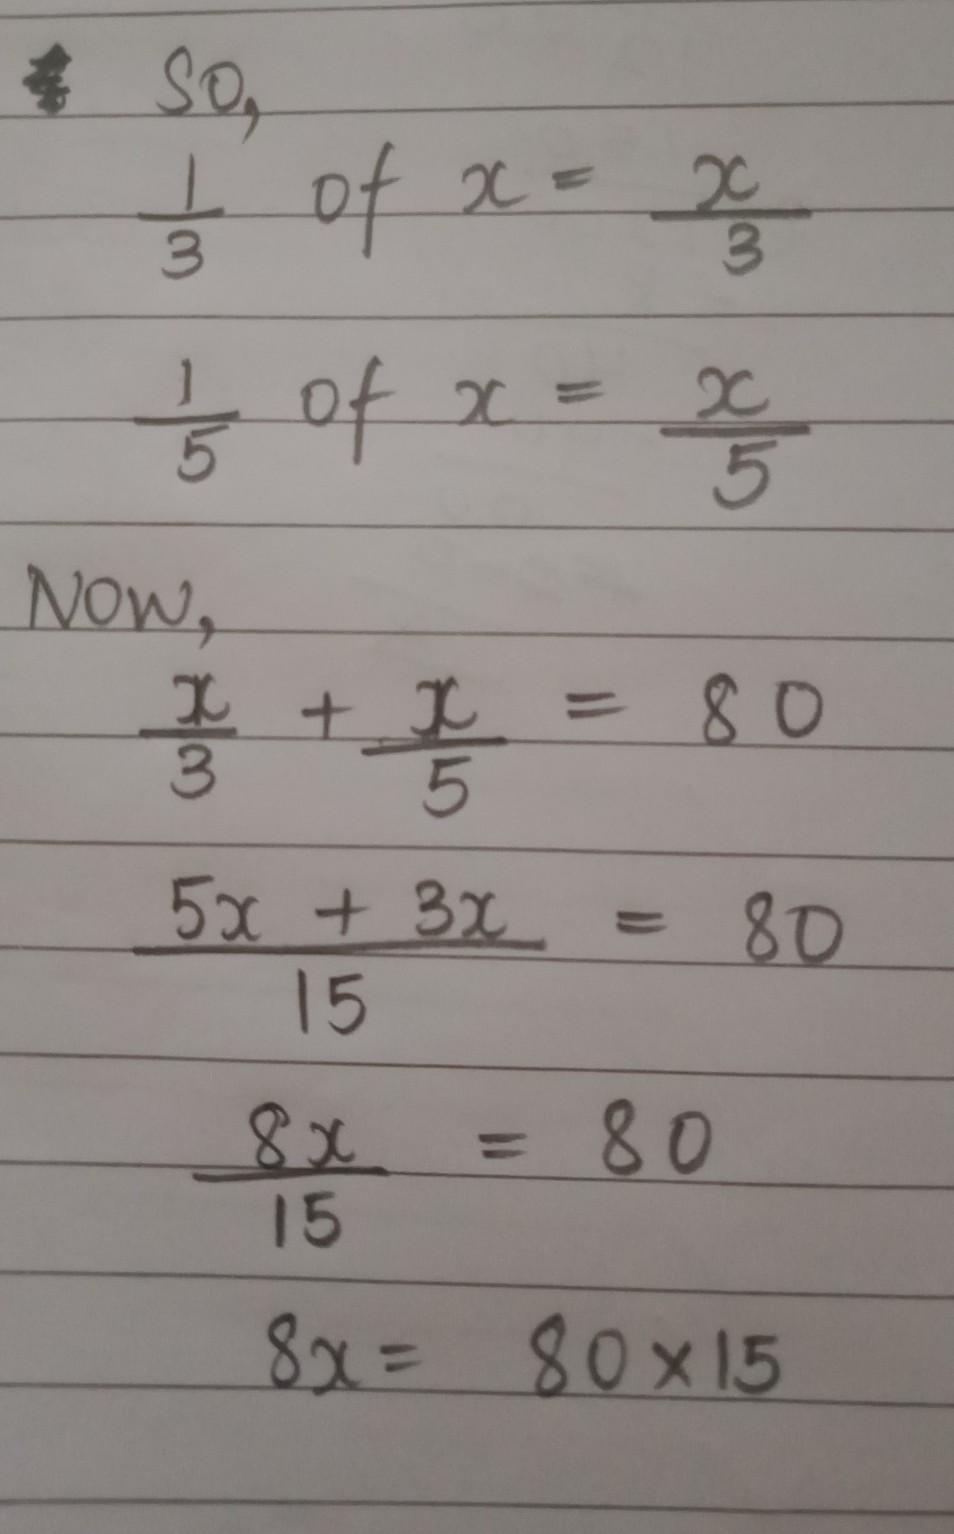 So,
1/3 of x = x/3
1/5 of x = x/5
Now,
x/3 + x/5 = 80
5x + 3x/15 = 80
8x/15 = 80
8x = 80 × 15